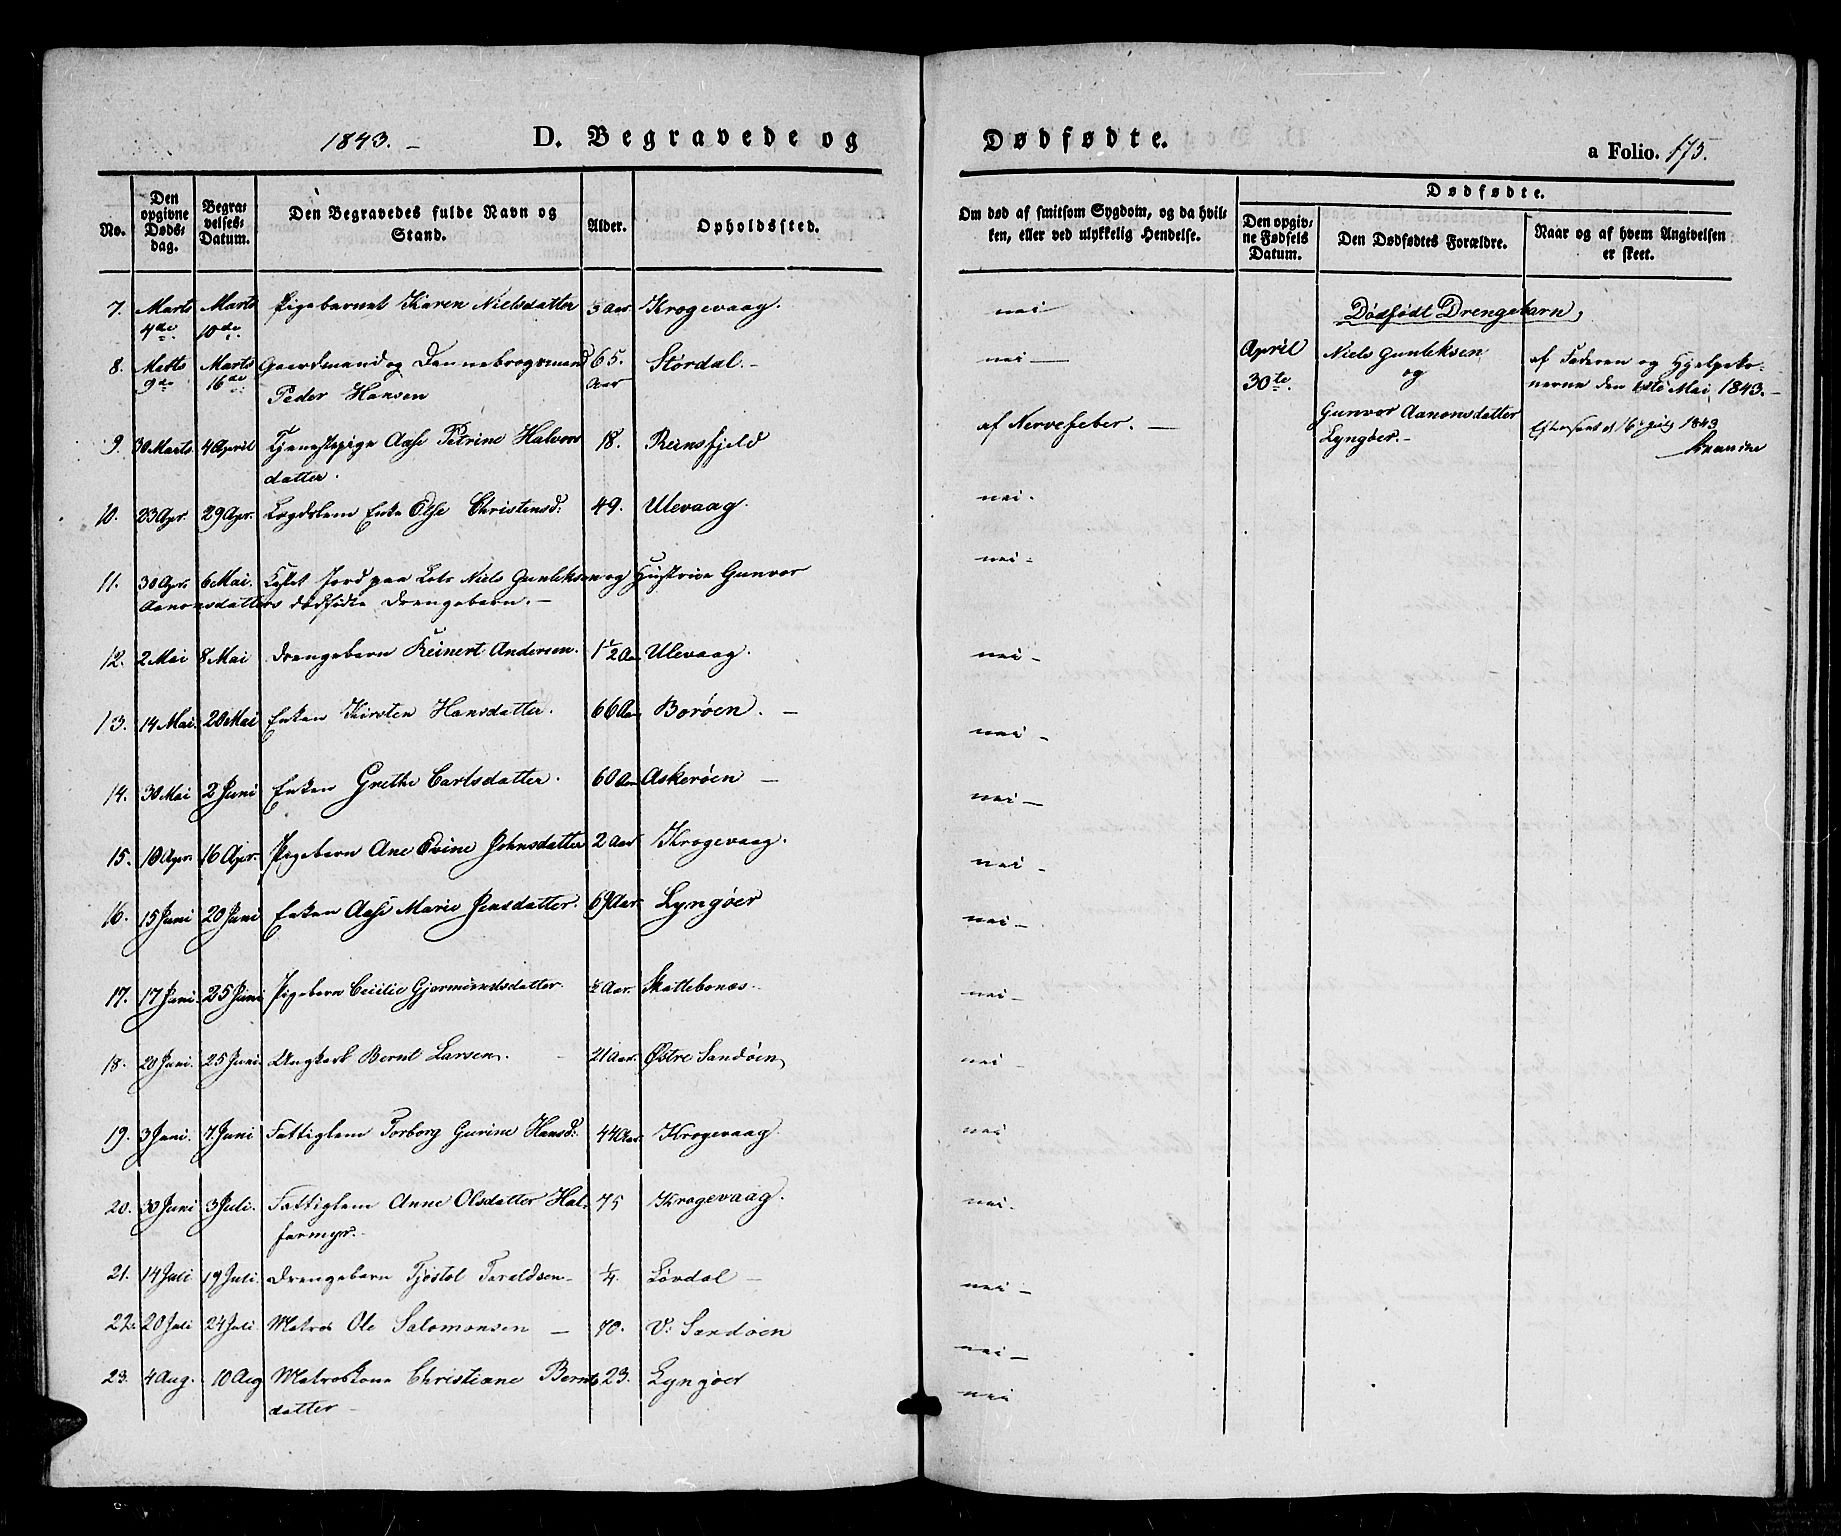 1843. – D. Begravede og
Dødfødte.
a Folio. 175.
No.
Den opgivne Døds-dag.
Begra-velses-Datum.
Den Begravedes fulde Navn og Stand.
Alder.
Opholdssted.
Om død af smitsom Sygdom, og da hvil-ken, eller ved ulykkelig Hendelse.
Dødfødte.
Den opgiv-ne Fødsels Datum.
Den Dødfødtes Forældre.
Naar og af hvem Angivelsen er skeet.
7. Marts 4de Marts 10de Pigebarnet Karen Nielsdatter 3 Aar. Krogevaag. nei
8. Marts 9de Marts 16de Gaardmand og Dannebrogsmand 65. Aar Stordal. – nei –
Peder Hansen
9. 30 Marts 4 April Tjenestepige Aase Petrine Halvors 18. Reinsfjeld af Nervefeber. –
datter.
10. 23 Apr. 29 Apr. Lægdslem Enke Else Christensd: 49. Ulevaag. nei.
11. 30 Apr. 6 Mai. Kastet Jord paa Lods Niels Gunleksen og Hustrue Gunvor nei –
Aanonsdatters dødfødte Drengebarn. –
12. 2 Mai 8 Mai Drengebarn Reinert Andersen. 1 1/2 Aar Ulevaag. nei –
13. 14 Mai. 20 Mai Enken Kirsten Hansdatter. 66 Aar Borøen. – nei –
14. 30 Mai 2 Juni Enken Grethe Carlsdatter. 60 Aar Askerøen – nei –
15. 10 Apr. 16 Apr. Pigebarn Ane Evine Johnsdatter 2 Aar Krogevaag. nei –
16. 15 Juni 20 Juni Enken Aase Marie Jensdatter. 69 Aar. Lyngøer nei –
17. 17 Juni. 25 Juni Pigebarn Cecilie Gjermundsdatter. 1/2 Aar. Skattebonæs. nei –
18. 20 Juni. 25 Juni. Ungkarl Bernt Larsen. 21 Aar. Østre Sandøen nei –
19. 3 Juni. 7. Juni Fattiglem Torborg Gurine Hansd: 44 Aar. Krogevaag. nei
20. 30 Juni 3 Juli. Fattiglem Anne Olsdatter Hal- 75 Krogevaag. nei.
formyr.
21. 14 Juli 19 Juli. Drengebarn Tjøstol Taraldsen – 1/4. Løvdal – nei –
22. 20 Juli 24 Juli. Matros Ole Salomonsen – 70. V: Sandøen nei –
23. 4 Aug. 10 Aug Matroskone Christiane Bernts 23. Lyngøer nei
datter –
Dødfødt Drengebarn,
April 30te.
Niels Gunleksen
og
Gunvor Aanonsdatter
Lyngøer. –
af Faderen og Hjelpeko-
nerne den 1ste Mai 1843. –
Efterseet d 16 Juli 1843